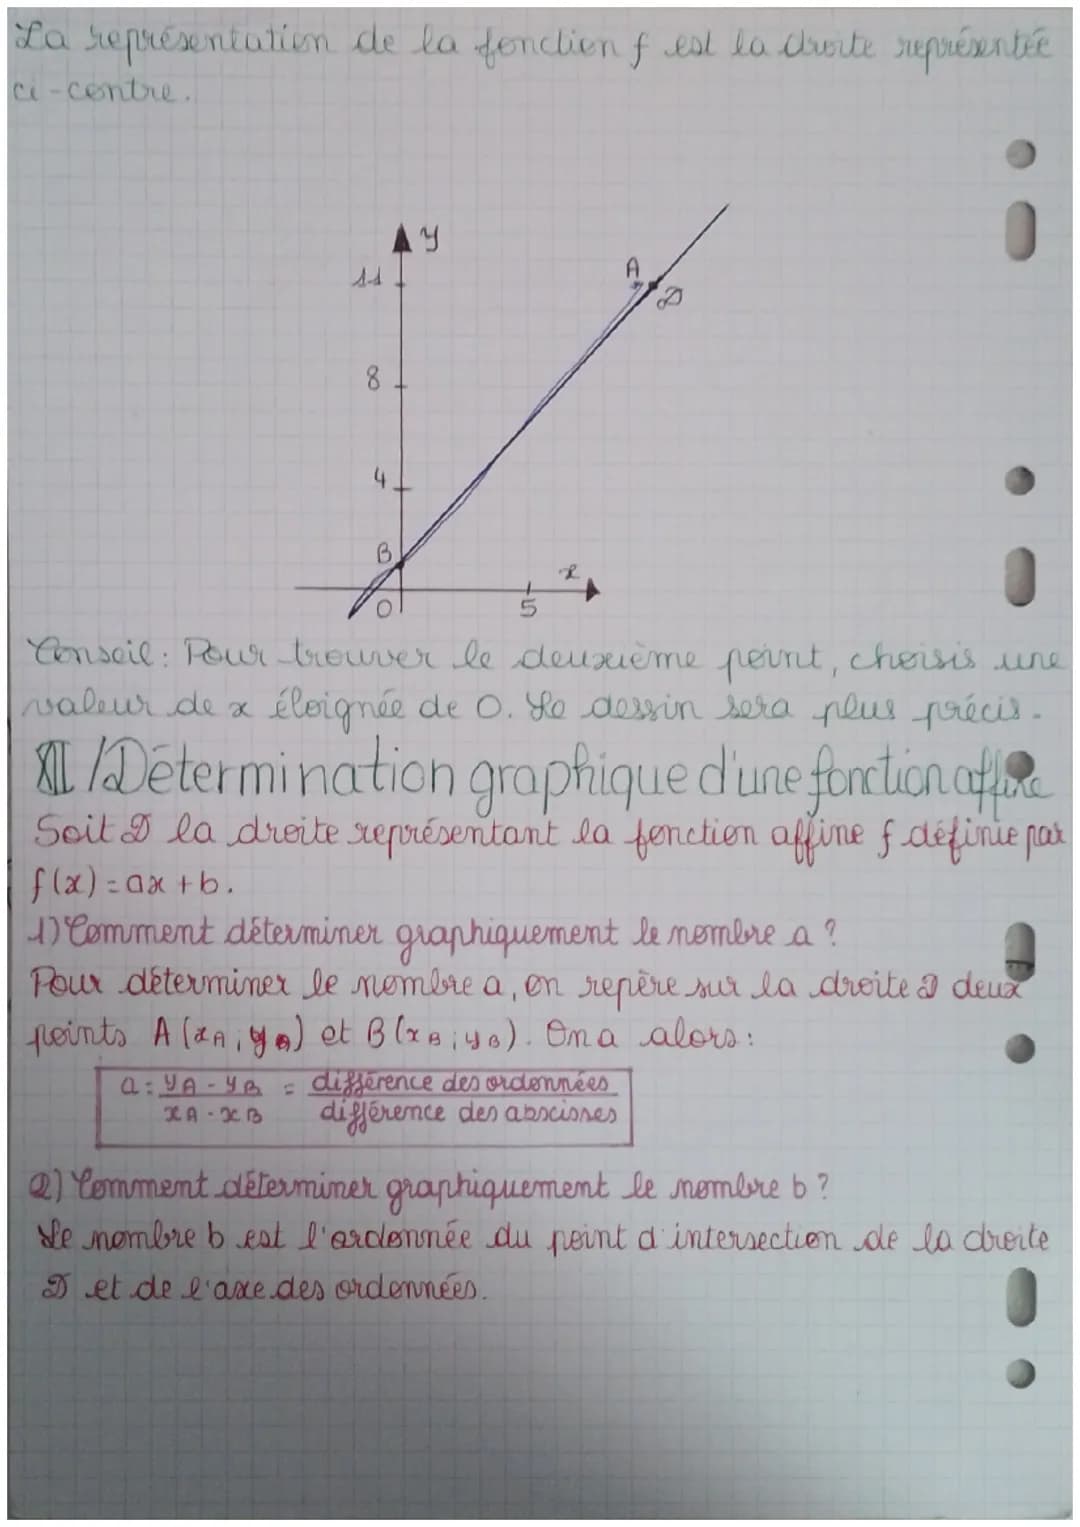 La représentation de la fonction f est la droite représentée
ci-contre.
y
11
A
D
8
4
B
x
O
5
Conseil : Pour trouver le deuxième point, choisis une
valeur de x éloignée de 0. Le dessin sera plus précis.
XII /Détermination graphique d'une fonction affine
Soit D la droite représentant la fonction affine f définie par
f(x) = ax + b.
1) Comment déterminer graphiquement le nombre a ?
Pour déterminer le nombre a, on repère sur la droite D deux
points A (xA ; yA) et B (xB ; yB). On a alors :
a = yA - yB = différence des ordonnées
xA - xB différence des abscisses
2) Comment déterminer graphiquement le nombre b ?
Le nombre b est l'ordonnée du point d'intersection de la droite
D et de l'axe des ordonnées.